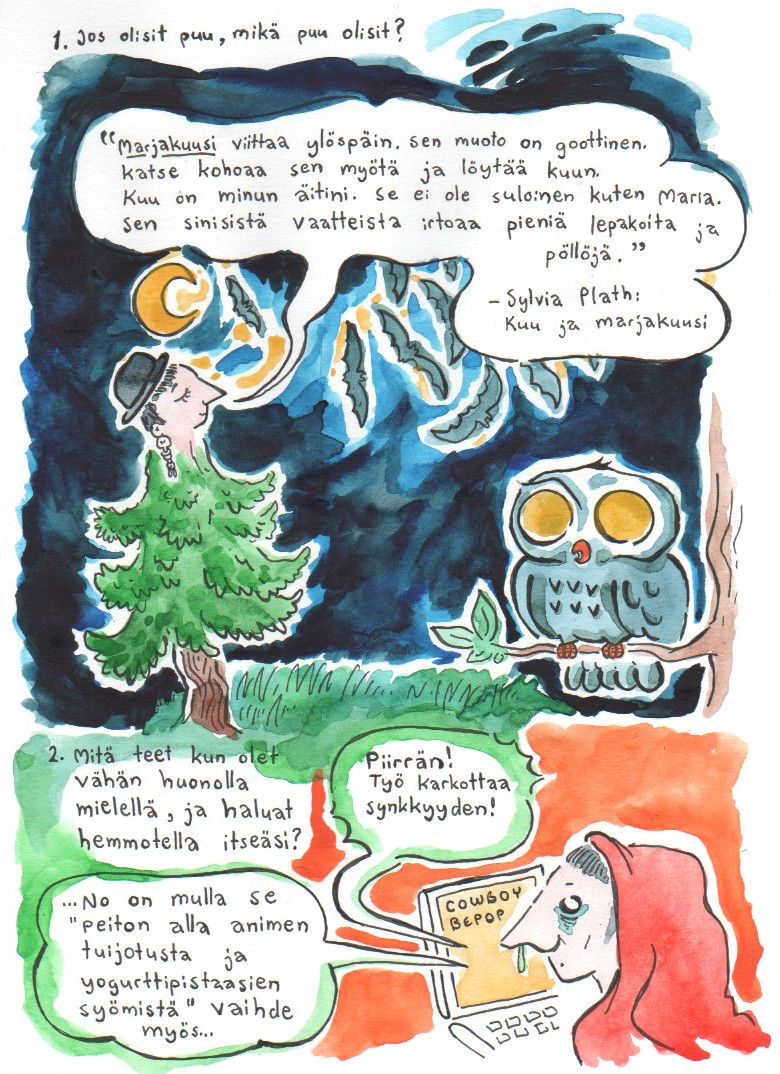 1. Jos olisit puu, mikä puu olisit?
"Marjakuusi viittaa ylöspäin. Sen muoto on goottinen.
Katse kohoaa sen myötä ja löytää kuun.
Kuu on minun äitini. Se ei ole suloinen kuten Maria.
Sen sinisistä vaatteista irtoaa pieniä lepakoita ja
pöllöjä."
- Sylvia Plath:
Kuu ja marjakuusi
2. Mitä teet kun olet
vähän huonolla
mielellä, ja haluat
hemmotella itseäsi?
Piirrän!
Työ karkottaa
synkkyyden!
...No on mulla se
"peiton alla animen
tuijotusta ja
yogurttipistaasien
syömistä" vaihde
myös...
COWBOY
BEPOP